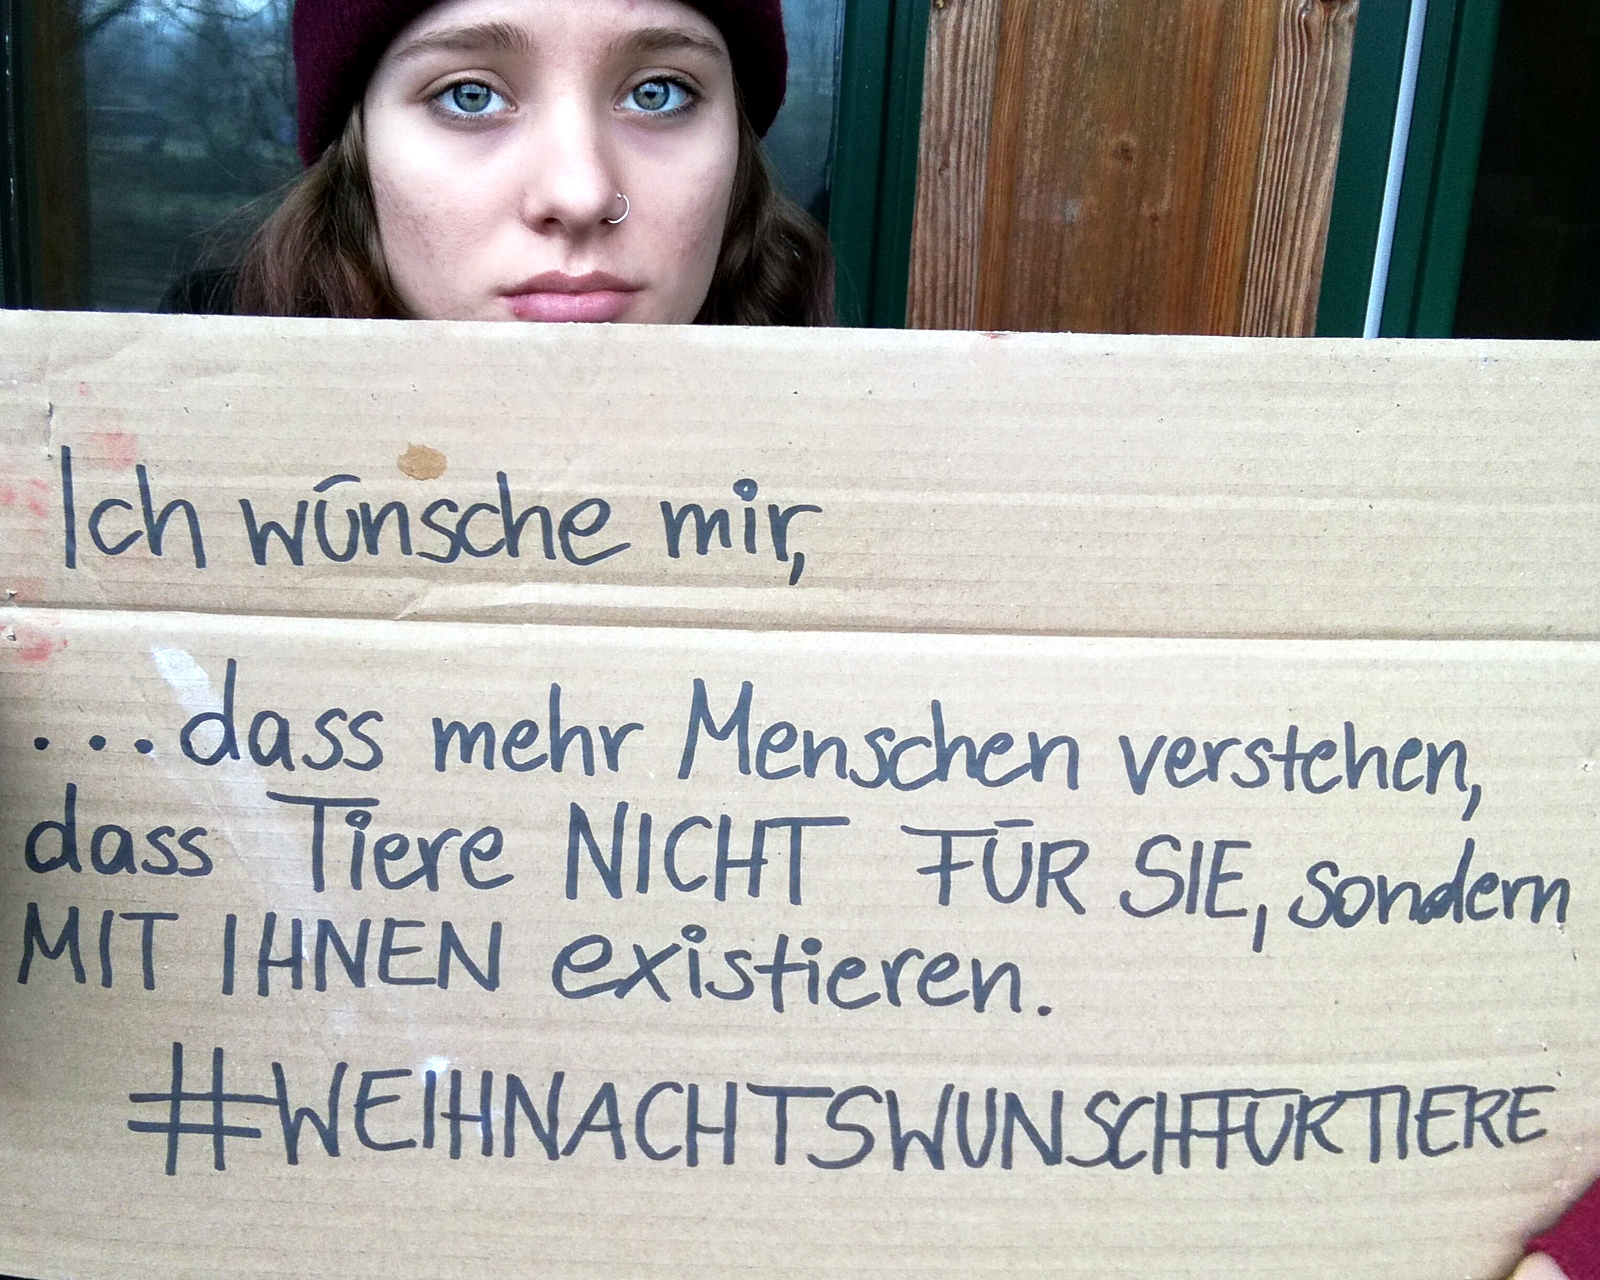 Ich wünsche mir,
...dass mehr Menschen verstehen,
dass Tiere NICHT FÜR SIE, sondern
MIT IHNEN existieren.
#WEIHNACHTSWUNSCHFÜRTIERE